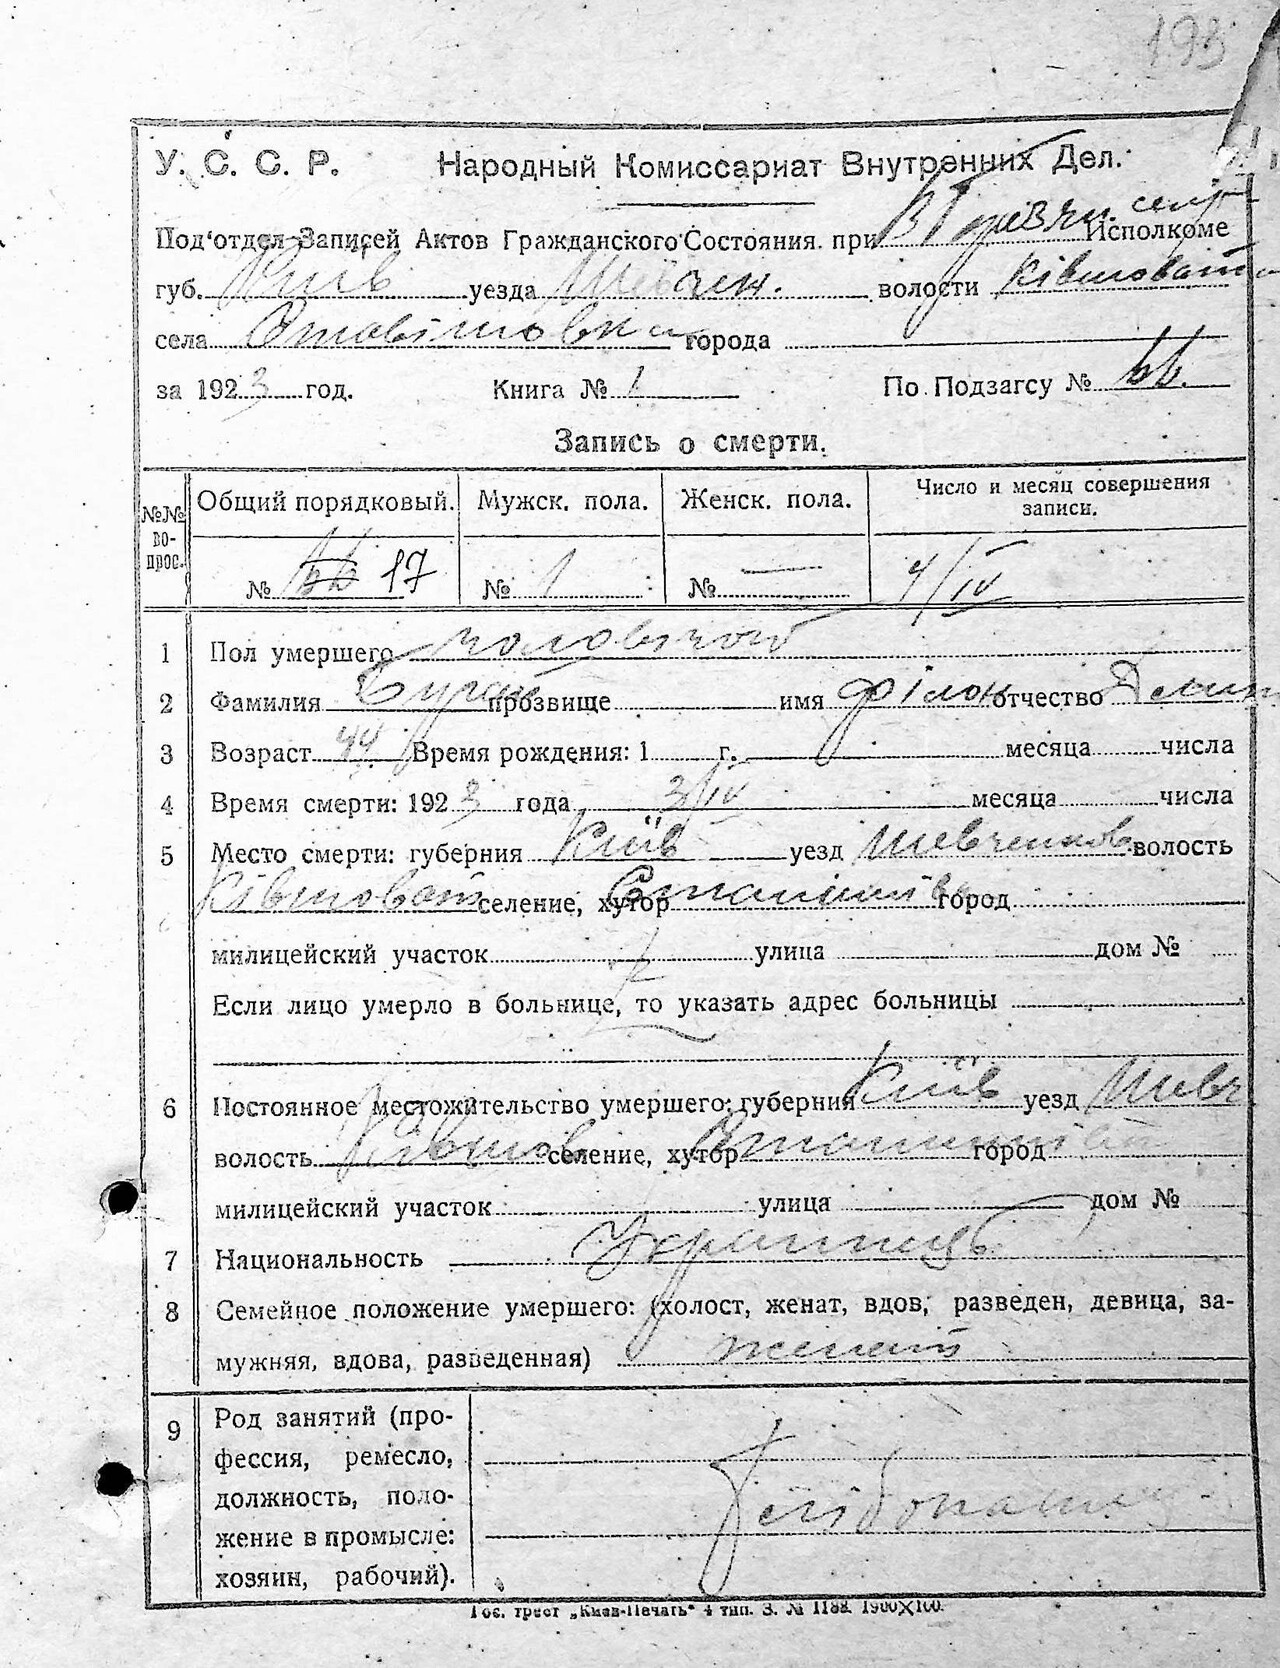 193
У. С. С. Р. Народный Комиссариат Внутренних Дел.
Под'отдел Записей Актов Гражданского Состояния при Исполкоме
губ. Київ уезда Шевчен. волости
села города
за 1923 год. Книга № 1 По Подзагсу № 66.
Запись о смерти.
№№ вопрос. Общий порядковый. Мужск. пола. Женск. пола. Число и месяц совершения записи.
№ 66 17 № 1 № — 4/IV
1 Пол умершего
2 Фамилия прозвище имя Філон отчество
3 Возраст 44 Время рождения: 1 г. месяца числа
4 Время смерти: 1923 года 3/IV месяца числа
5 Место смерти: губерния Київ уезд Шевченков волость
селение, хутор город
милицейский участок улица дом №
Если лицо умерло в больнице, то указать адрес больницы
6 Постоянное местожительство умершего: губерния Київ уезд Шевч
волость селение, хутор город
милицейский участок улица дом №
7 Национальность Українець
8 Семейное положение умершего: (холост, женат, вдов, разведен, девица, за-
мужняя, вдова, разведенная) женат
9 Род занятий (про-
фессия, ремесло,
должность, поло-
жение в промысле:
хозяин, рабочий).
Гос. трест „Киев-Печать“ 4 тип. З. № 1188. 1900×100.